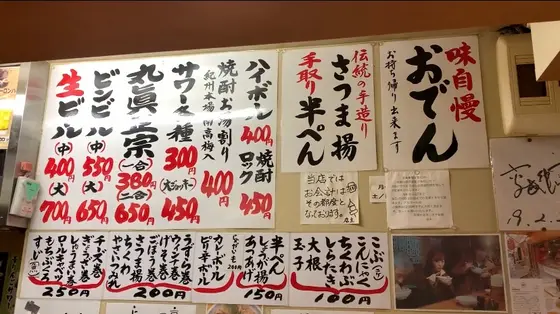 味自慢
おでん
お持ち帰り出来ます
伝統の手造り
さつま揚
手取り半ぺん
ハイボール 400円
焼酎ロック 450円
焼酎お湯割り
紀州本場南高梅入
400円
サワー各種 300円
大ジョッキー 450円
丸眞正宗
(一合) 380円
(二合) 650円
ビンビール
(中) 550円
(大) 650円
生ビール
(中) 400円
(大) 700円
当店では
お会計は
その都度と
なっております。
店主
こぶ
こんにゃく
ちくわぶ
しらたき
大根
玉子
100円
半ぺん
しょうが揚
あつあげ
150円
じゃがいも 200円
カレーボール
ピリ辛ボール
うずら巻
ウィンナ巻
ごぼう巻
さつま揚
ちくわ
やさい
200円
チーズ巻
ぎょうざ巻
しゅうまい巻
ロールキャベツ
もちぶくろ
すじ
250円
19.2.